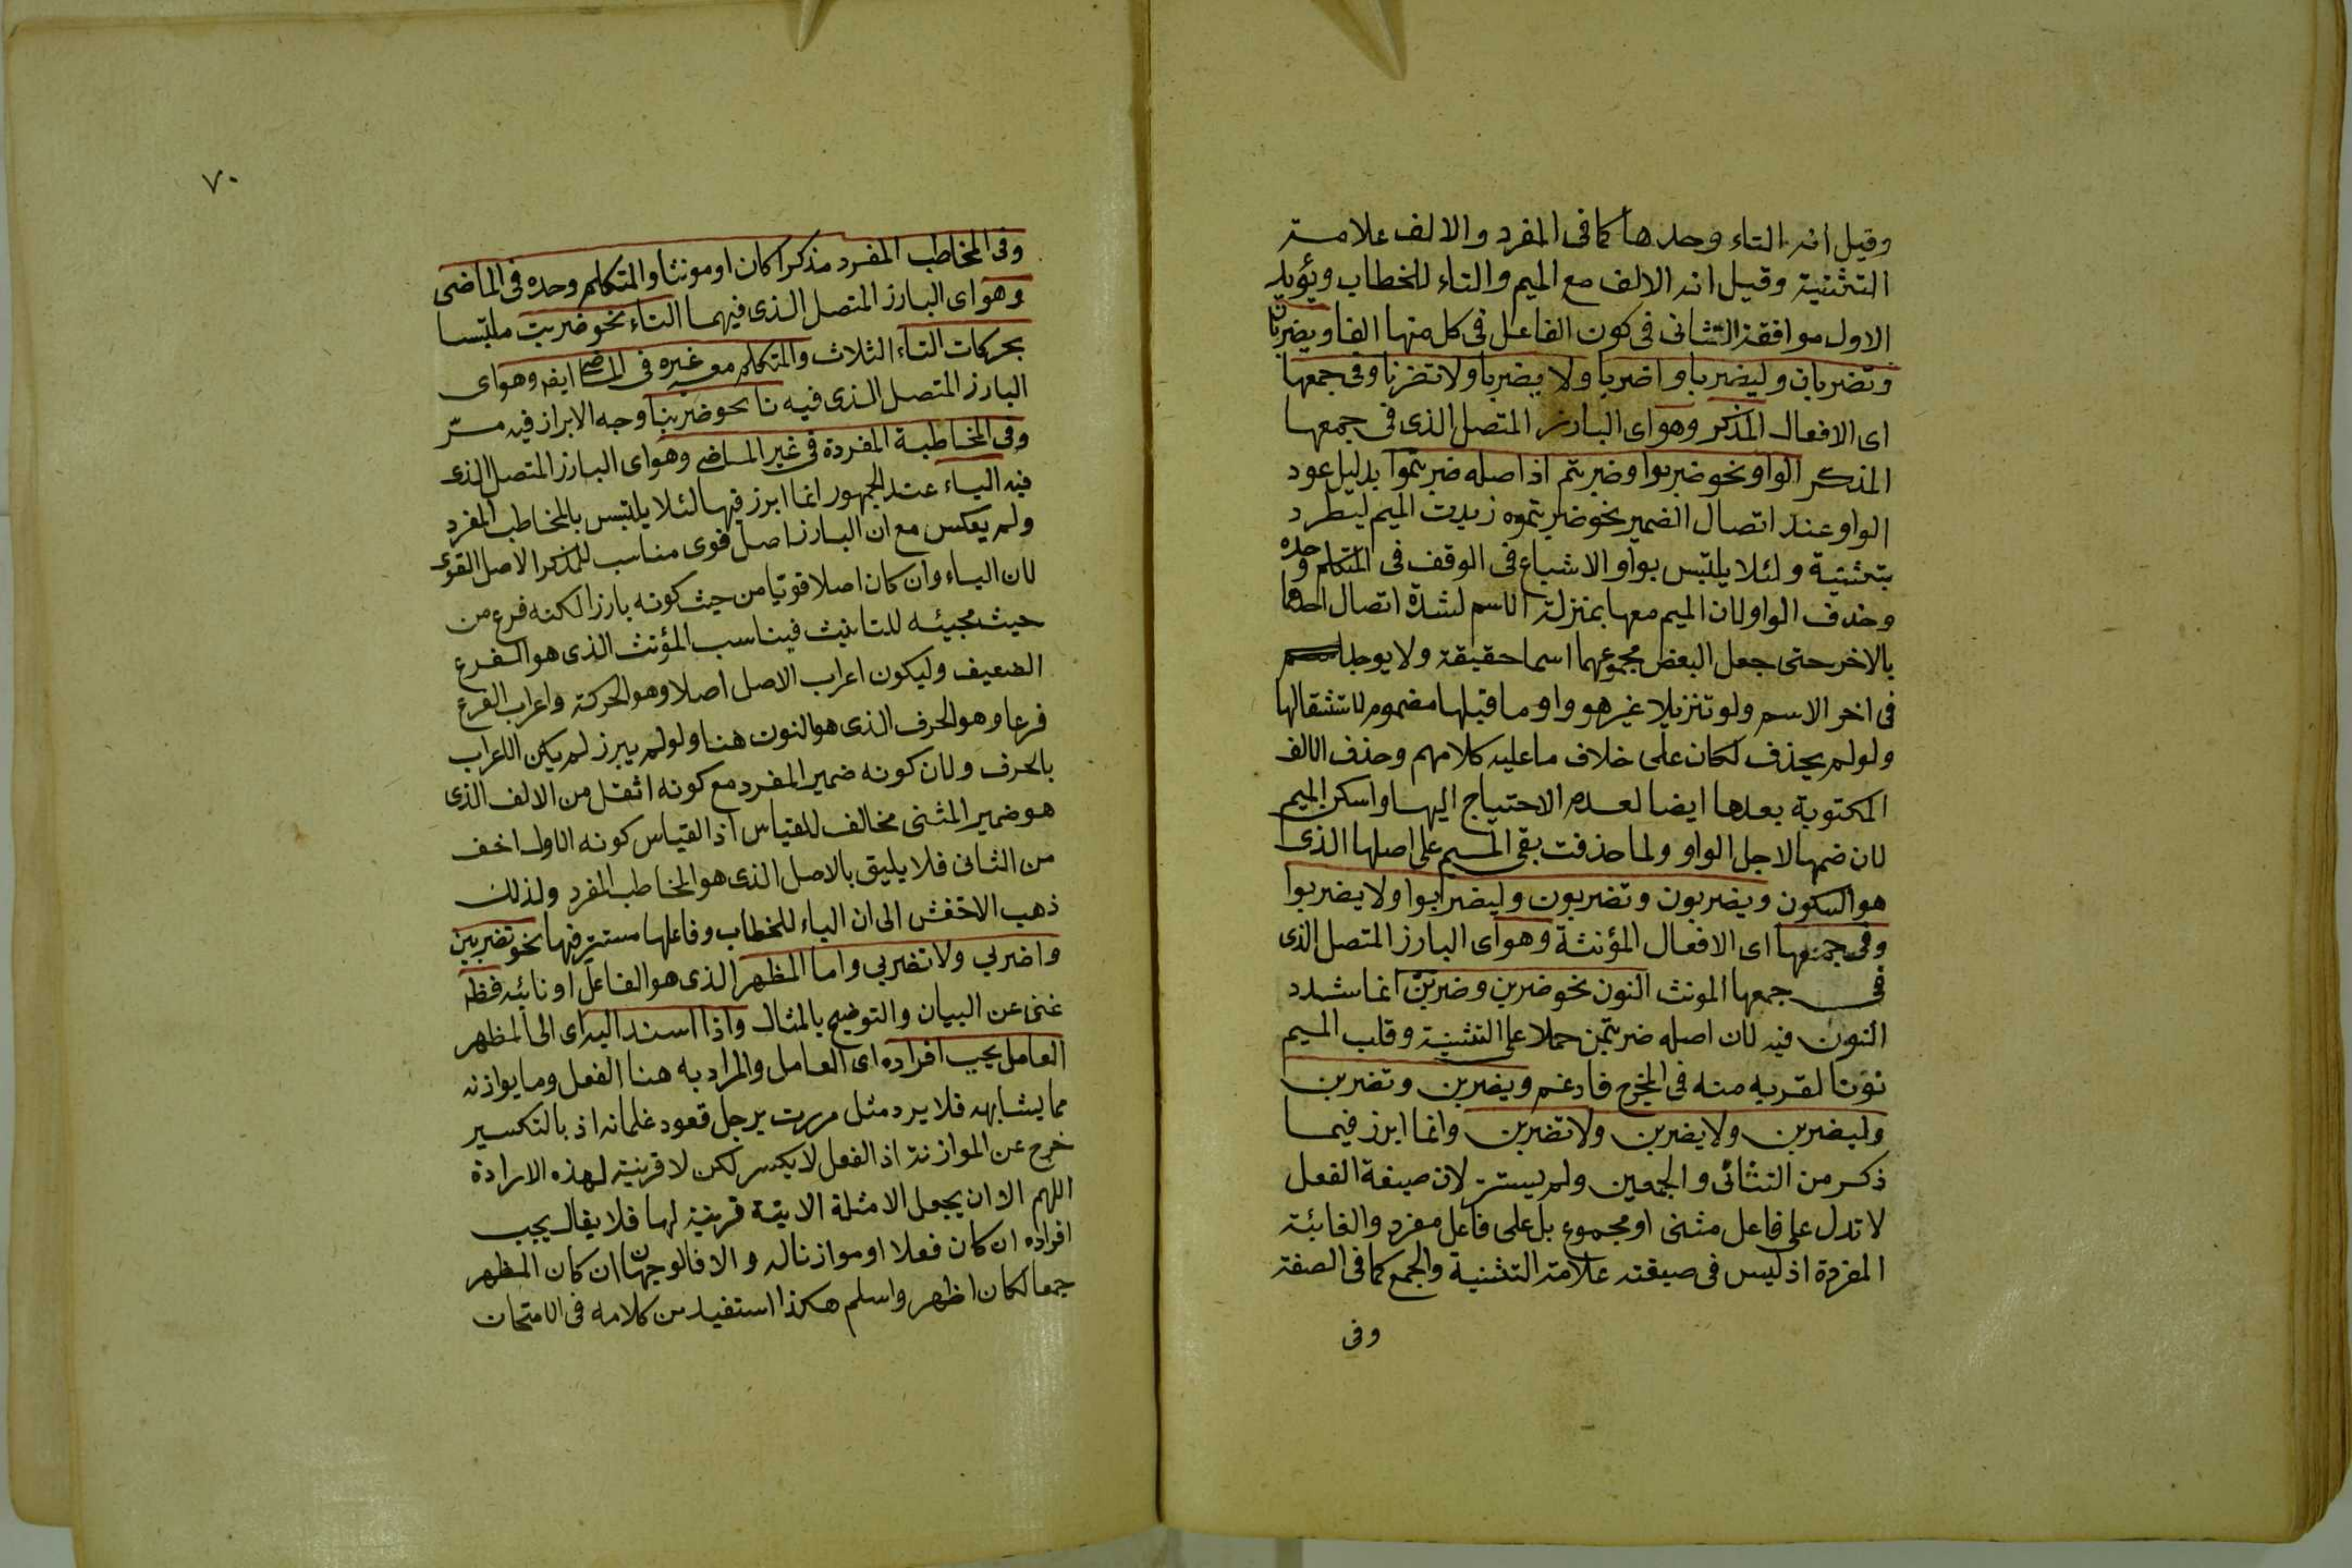 وقيل انه التاء وحدها كما فى المفرد والالف علامة
التثنية وقيل انه الالف مع الميم والتاء للخطاب ويؤيد
الاول موافقة الثانى فى كون الفاعل فى كل منها الفا ويضربان
وتضربان وليضربا واضربا ولا يضربا ولا تضربا وفى جمعها
اى الافعال المذكر وهو اى البارز المتصل الذى فى جمعها
المذكر الواو نحو ضربوا وضربتم اذ اصله ضربتموا بدليل عود
الواو عند اتصال الضمير نحو ضربتموه زيدت الميم ليطرد
بتثنية ولئلا يلتبس بواو الاشباع فى الوقف فى المتكلم وحده
وحذف الواو لان الميم معها بمنزلة الاسم لشدة اتصال احدهما
بالاخر حتى جعل البعض مجموعهما اسما حقيقة ولا يوجد
فى اخر الاسم ولو تنزيلا غير هو واو ما قبلها مضموم لاستثقالها
ولو لم يحذف لكان على خلاف ما عليه كلامهم وحذف الالف
المكتوبة بعدها ايضا لعدم الاحتياج اليها واسكن الميم
لان ضمها لاجل الواو ولما حذفت بقى الميم على اصلها الذى
هو السكون ويضربون وتضربون وليضرابوا ولا يضربوا
وفى جمعها اى الافعال المؤنثة وهو اى البارز المتصل الذى
فى جمعها المونث النون نحو ضربن وضربتن انما شدد
النون فيه لان اصله ضربتمن حملا على التثنية وقلب الميم
نونا لقربه منه فى المخرج فادغم ويضربن وتضربن
وليضربن ولا يضربن ولا تضربن وانما ابرز فيما
ذكر من التثانى والجمعين ولم يستتر لان صيغة الفعل
لا تدل على فاعل مثنى او مجموع بل على فاعل مفرد والغائبة
المفردة اذ ليس فى صيغته علامة التثنية والجمع كما فى الصفة
وفى
٧٠
وفى المخاطب المفرد مذكرا كان او مونثا والمتكلم وحده فى الماضى
وهو اى البارز المتصل الذى فيهما التاء نحو ضربت ملتبسا
بحركات التاء الثلاث والمتكلم معه غيره فى الماضى ايضا وهو اى
البارز المتصل الذى فيه نا نحو ضربنا وجه الابراز فيه مر
وفى المخاطبة المفردة فى غير الماضى وهو اى البارز المتصل الذى
فيه الياء عند الجمهور انما ابرز فيها لئلا يلتبس بالمخاطب المفرد
ولم يعكس مع ان البارز اصل قوى مناسب للمذكر الاصل القوى
لان الياء وان كان اصلا قويا من حيث كونه بارزا لكنه فرع من
حيث مجيئه للتانيث فيناسب المؤنث الذى هو الفرع
الضعيف وليكون اعراب الاصل اصلا وهو الحركة واعراب الفرع
فرعا وهو الحرف الذى هو النون هنا ولو لم يبرز لم يكن الاعراب
بالحرف ولان كونه ضمير المفرد مع كونه اثقل من الالف الذى
هو ضمير المثنى مخالف للقياس اذ القياس كونه الاول اخف
من الثانى فلا يليق بالاصل الذى هو المخاطب المفرد ولذلك
ذهب الاخفش الى ان الياء للخطاب وفاعلها مستتر فيها نحو تضربين
واضربي ولا تضربي واما المظهر الذى هو الفاعل او نائبه فظ
غنى عن البيان والتوضيح بالمثال واذا اسند اليه اى الى المظهر
العامل يجب افراده اى العامل والمراد به هنا الفعل وما يوازنه
مما يشابهه فلا يرد مثل مررت برجل قعود غلمانه اذ بالتكسير
خرج عن الموازنة اذ الفعل لا يكسر لكن لا قرينة لهذه الارادة
اللهم الا ان يجعل الامثلة الاتية قرينة لها فلا يقال يجب
افراده ان كان فعلا او موازنا له والا فالوجهان ان كان المظهر
جمعا لكان اظهر واسلم هكذا استفيد من كلامه فى الامتحان